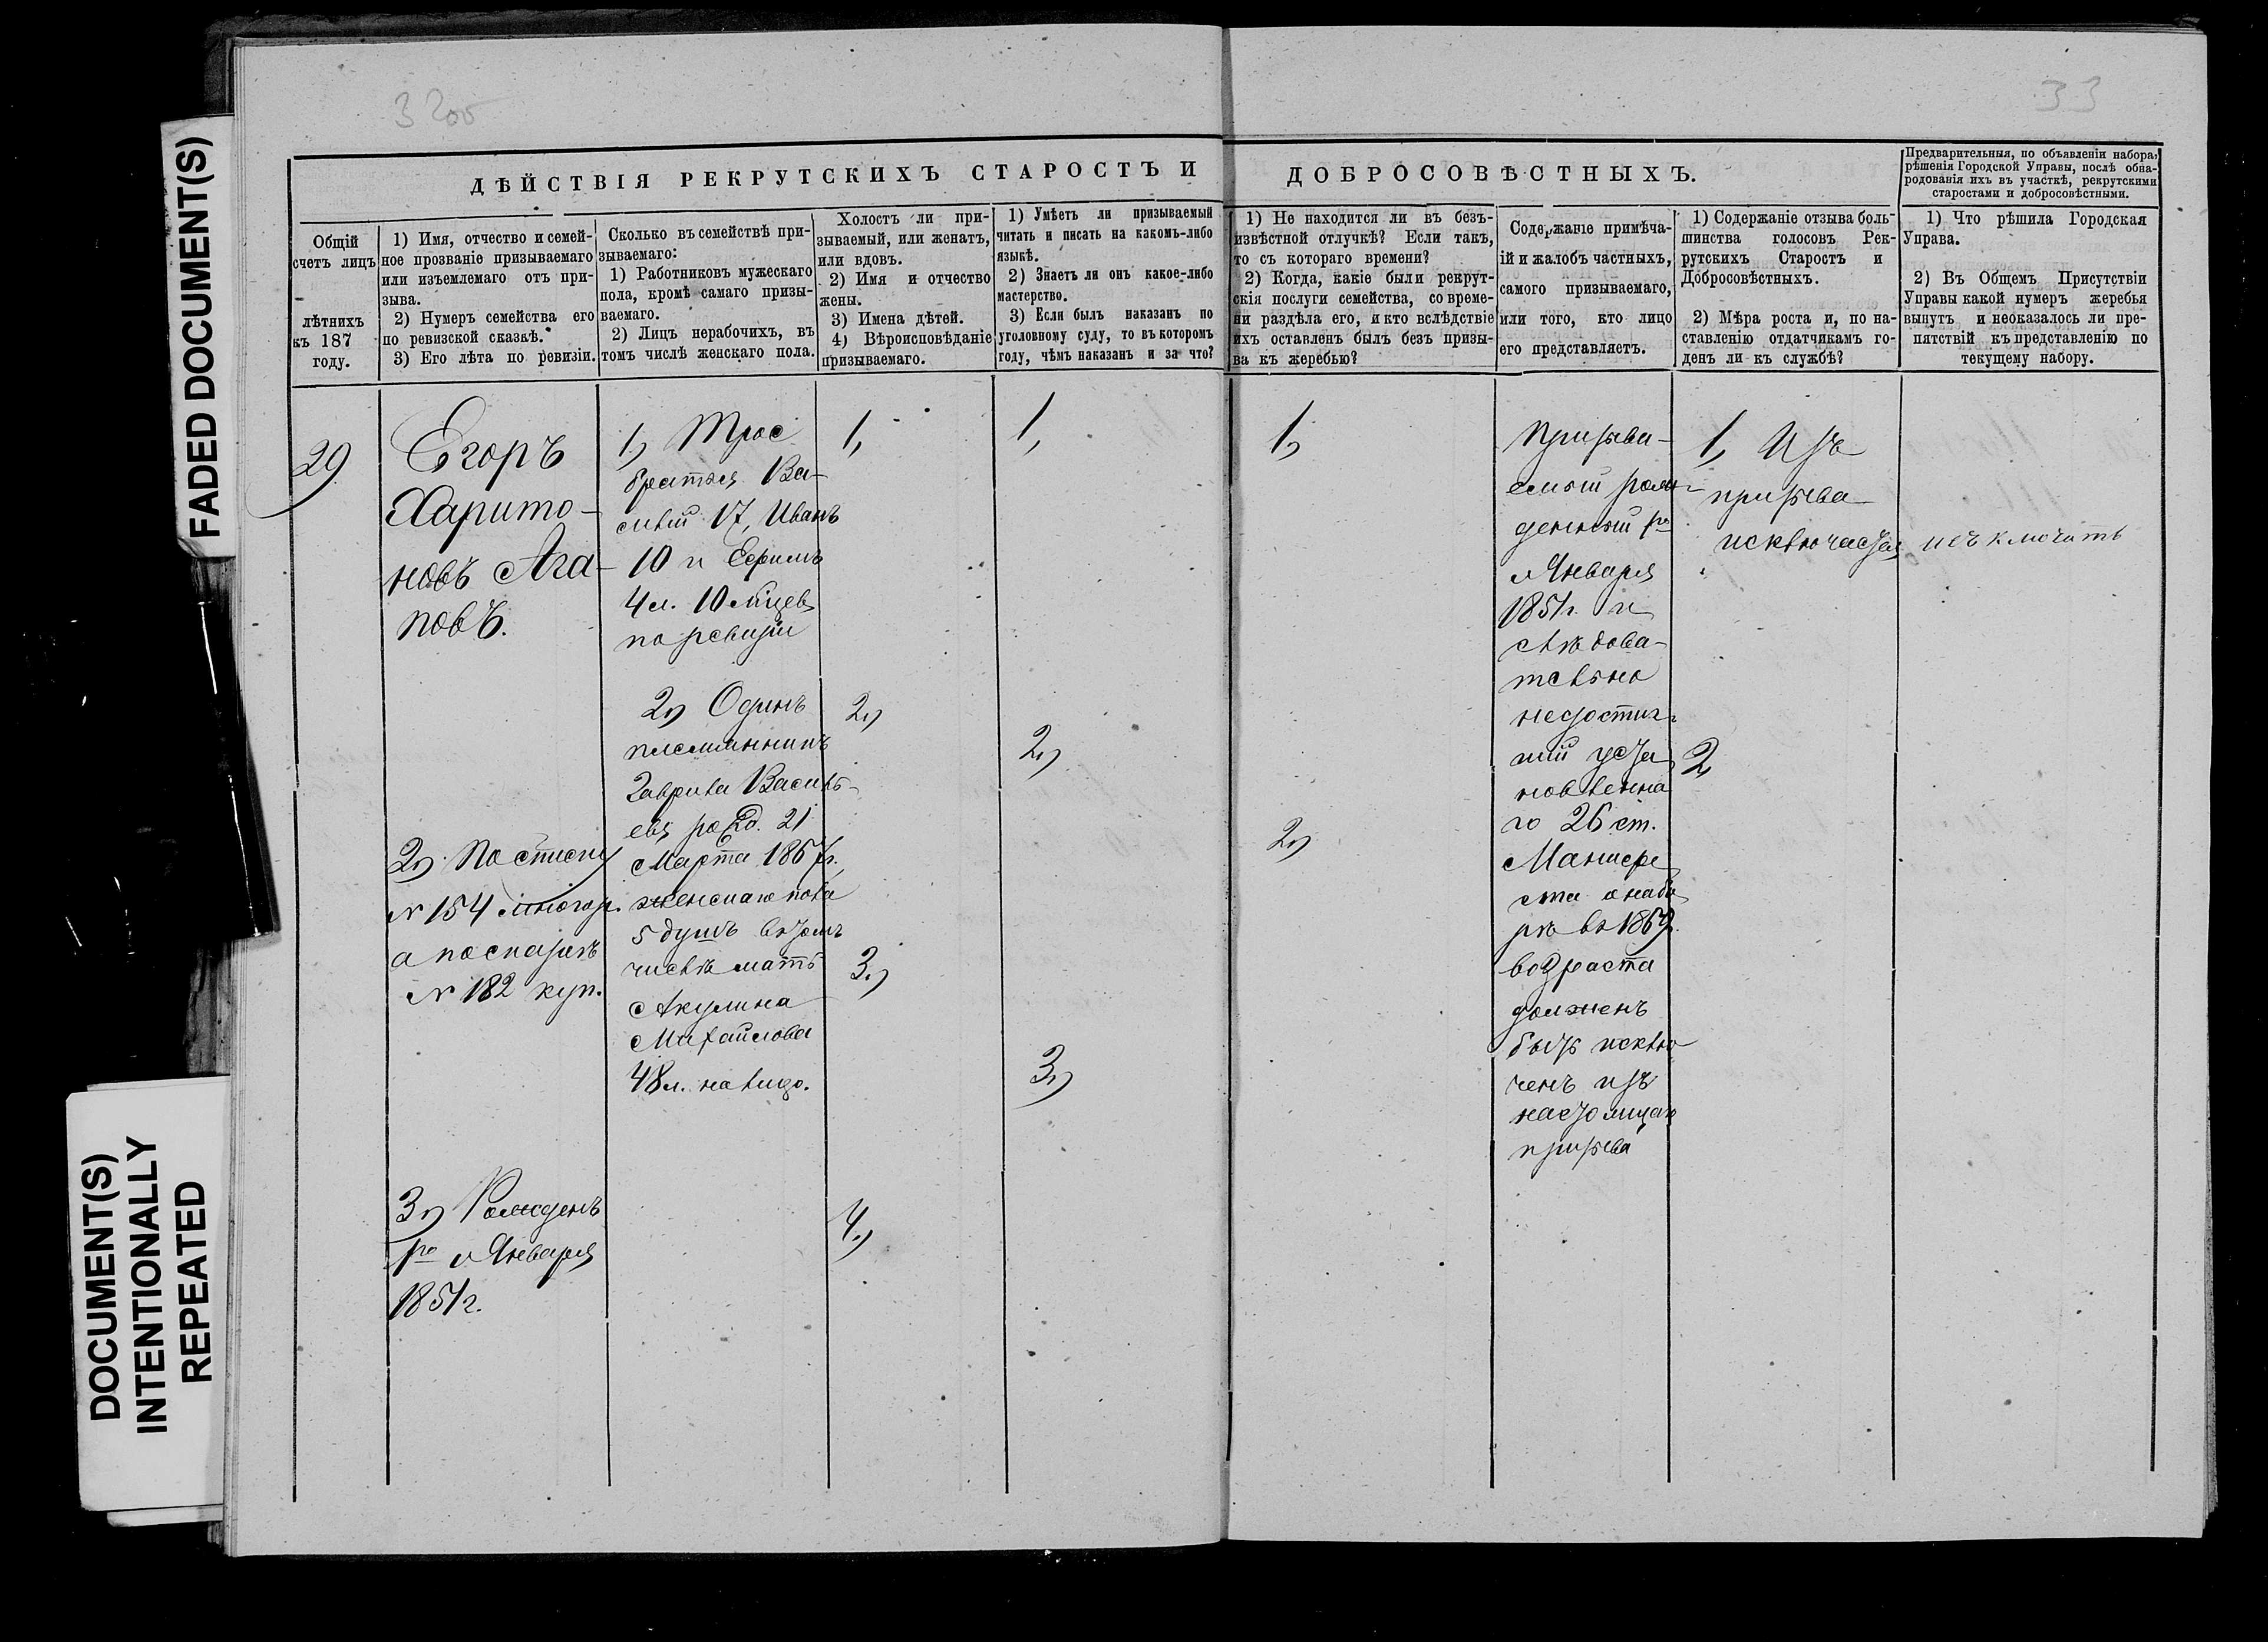 FADED DOCUMENT(S)
DOCUMENT(S)
INTENTIONALLY
REPEATED
33
ДѢЙСТВІЯ РЕКРУТСКИХЪ СТАРОСТЪ И ДОБРОСОВѢСТНЫХЪ.
Предварительныя, по объявленіи набора,
рѣшенія Городской Управы, послѣ обна-
родованія ихъ въ участкѣ, рекрутскими
старостами и добросовѣстными.
Общій
счетъ лицъ
лѣтнихъ
къ 187
году.
1) Имя, отчество и семей-
ное прозваніе призываемаго
или изъемлемаго отъ при-
зыва.
2) Нумеръ семейства его
по ревизской сказкѣ.
3) Его лѣта по ревизіи.
Сколько въ семействѣ при-
зываемаго:
1) Работниковъ мужескаго
пола, кромѣ самаго призы-
ваемаго.
2) Лицъ нерабочихъ, въ
томъ числѣ женскаго пола.
Холостъ ли при-
зываемый, или женатъ,
или вдовъ.
2) Имя и отчество
жены.
3) Имена дѣтей.
4) Вѣроисповѣданіе
призываемаго.
1) Умѣетъ ли призываемый
читать и писать на какомъ-либо
языкѣ.
2) Знаетъ ли онъ какое-либо
мастерство.
3) Если былъ наказанъ по
уголовному суду, то въ которомъ
году, чѣмъ наказанъ и за что?
1) Не находится ли въ безъ-
извѣстной отлучкѣ? Если такъ,
то съ котораго времени?
2) Когда, какіе были рекрут-
скія послуги семейства, со време-
ни раздѣла его, и кто вслѣдствіе
ихъ оставленъ былъ безъ призы-
ва къ жеребью?
Содержаніе примѣча-
ій и жалобъ частныхъ,
самого призываемаго,
или того, кто лицо
его представляетъ.
1) Содержаніе отзыва боль-
шинства голосовъ Рек-
рутскихъ Старостъ и
Добросовѣстныхъ.
2) Мѣра роста и, по на-
ставленію отдатчикамъ го-
денъ ли къ службѣ?
1) Что рѣшила Городская
Управа.
2) Въ Общемъ Присутствіи
Управы какой нумеръ жеребья
вынутъ и неоказалось ли пре-
пятствій къ представленію по
текущему набору.
29
Егоръ
Харито-
новъ Ага-
повъ.
2) По списку
№ 154
а по сказкѣ
№ 182 куп.
3) Рожденъ
1го Января
1851 г.
1) Трое
братья Ва-
силій 17, Иванъ
10 и Ефимъ
4 л. 10 мѣсяцев
по ревизіи
2) Одинъ
племянникъ
Гаврила Василь-
евъ рожд. 21
Марта 1867 г.
женскаго пола
5 душъ въ томъ
числѣ мать
Акулина
Михайлова
48 л. на лицо.
1,
2)
3)
4)
1,
2)
3)
1)
2)
Призыва-
емый рож-
денный 1го
Января
1851 г. и
слѣдова-
тельно
недостиг-
шій уста
новленна
го 26 ст.
Манифе
ста о набо
рѣ въ 1869 г.
возраста
долженъ
быть исклю
ченъ изъ
настоящаго
призыва
1, Изъ
призыва
исключается
2,
исключить